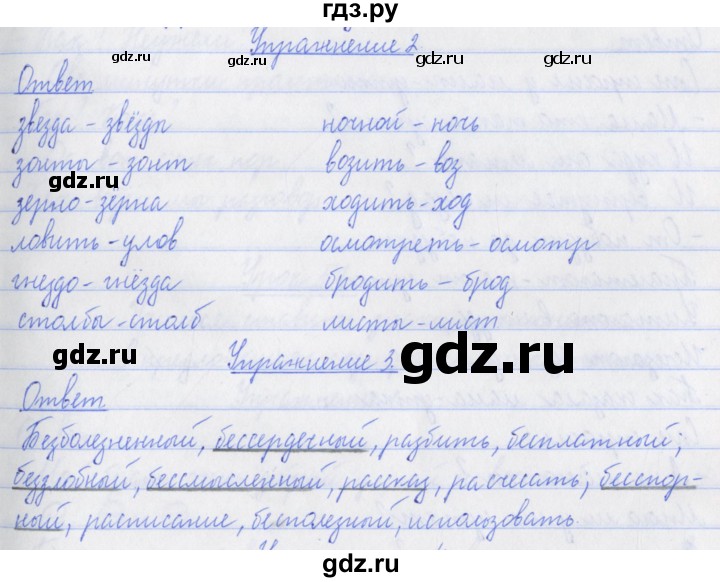 гдз.ру
Упражнение 2.
Ответ
звезда - звёзды ночной - ночь
зонты - зонт возить - воз
зерно - зёрна ходить - ход
ловить - улов осмотреть - осмотр
гнездо - гнёзда бродить - брод
столбы - столб листы - лист
Упражнение 3.
Ответ
Безболезненный, бессердечный, разбить, бесплатный;
беззлобный, бессмысленный, рассказ, расчесать; бесспор-
ный, расписание, бесполезный, использовать.
gdz.ru
gdz.ru
gdz.ru
gdz.ru
gdz.ru
gdz.ru
gdz.ru
gdz.ru
gdz.ru
gdz.ru